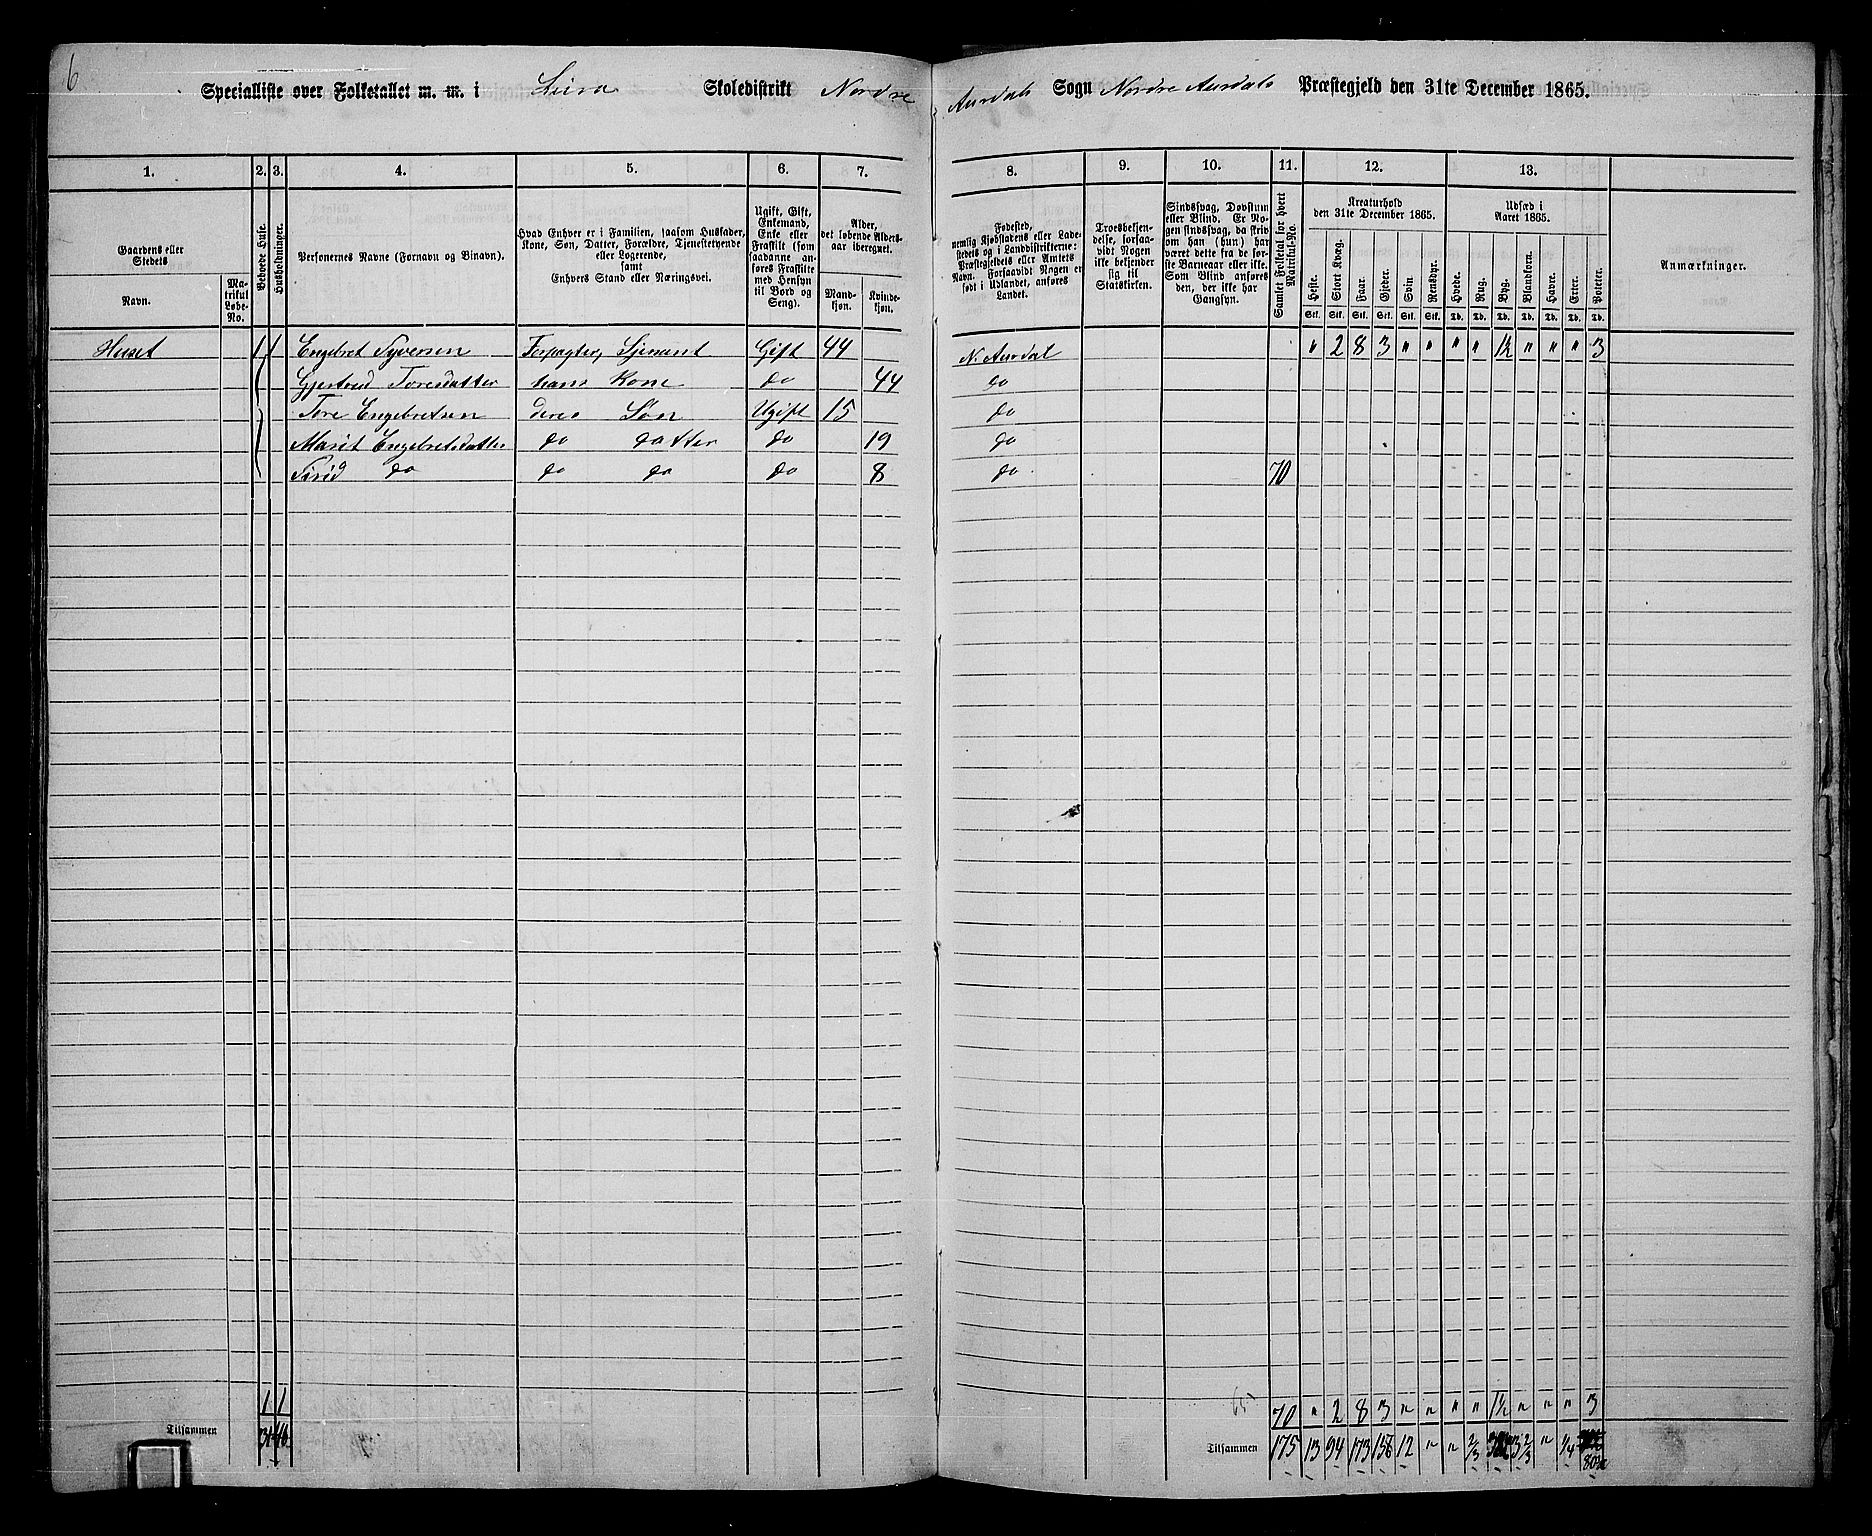 6
Specialliste over Folketallet m. m. i Leira Skoledistrikt Nordre Aurdals Sogn Nordre Aurdals Præstegjeld den 31te December 1865.
1. 2. 3. 4. 5. 6. 7. 8. 9. 10. 11. 12. 13.
Gaardens eller Stedets
Navn.
Matrikul Løbe-No.
Beboede Huse.
Husholdninger.
Personernes Navne (Fornavn og Binavn).
Hvad Enhver er i Familien, saasom Husfader, Kone, Søn, Datter, Forældre, Tjenestetyende eller Logerende, samt Enhvers Stand eller Næringsvei.
Ugift, Gift, Enkemand, Enke eller Fraskilt (som saadanne anføres Fraskilte med Hensyn til Bord og Seng).
Alder, det løbende Alders-aar iberegnet.
Mand-kjøn. Kvinde-kjøn.
Fødested, nemlig Kjøbstadens eller Ladestedets og i Landdistrikterne: Præstegjeldets eller Amtets Navn. Forsaavidt Nogen er født i Udlandet, anføres Landet.
Troesbekjendelse, forsaavidt Nogen ikke bekjender sig til Statskirken.
Sindssvag, Døvstum eller Blind. Er Nogen sindssvag, da skriv om han (hun) har været dette fra de første Barneaar eller ikke. Som Blind anføres den, der ikke har Gangsyn.
Samlet Folketal for hvert Matrikul-No.
Kreaturhold den 31te December 1865.
Heste. Stort Kvæg. Faar. Gjeder. Svin. Rensdyr.
Stk. Stk. Stk. Stk. Stk. Stk.
Udsæd i Aaret 1865.
Hvede. Rug. Byg. Blandkorn. Havre. Erter. Poteter.
Td. Td. Td. Td. Td. Td. Td.
Anmærkninger.
Huset 1 1 Engebret Syversen Forpagter, Gift 44 N. Aurdal " 2 8 3 " " " " 1½ " " " 3
Gjertrud Toresdatter hans Kone do 44 do
Tore Engebretsen deres Søn Ugift 15 do
Marit Engebretsdatter do datter do 19 do
Sirid do do do do 8 do 70
1 1 70 " 2 8 3 " " " " 1½ " " " 3
Tilsammen
Tilsammen 175 13 94 173 158 12 " " 2/3 3 2/3 " 1/4